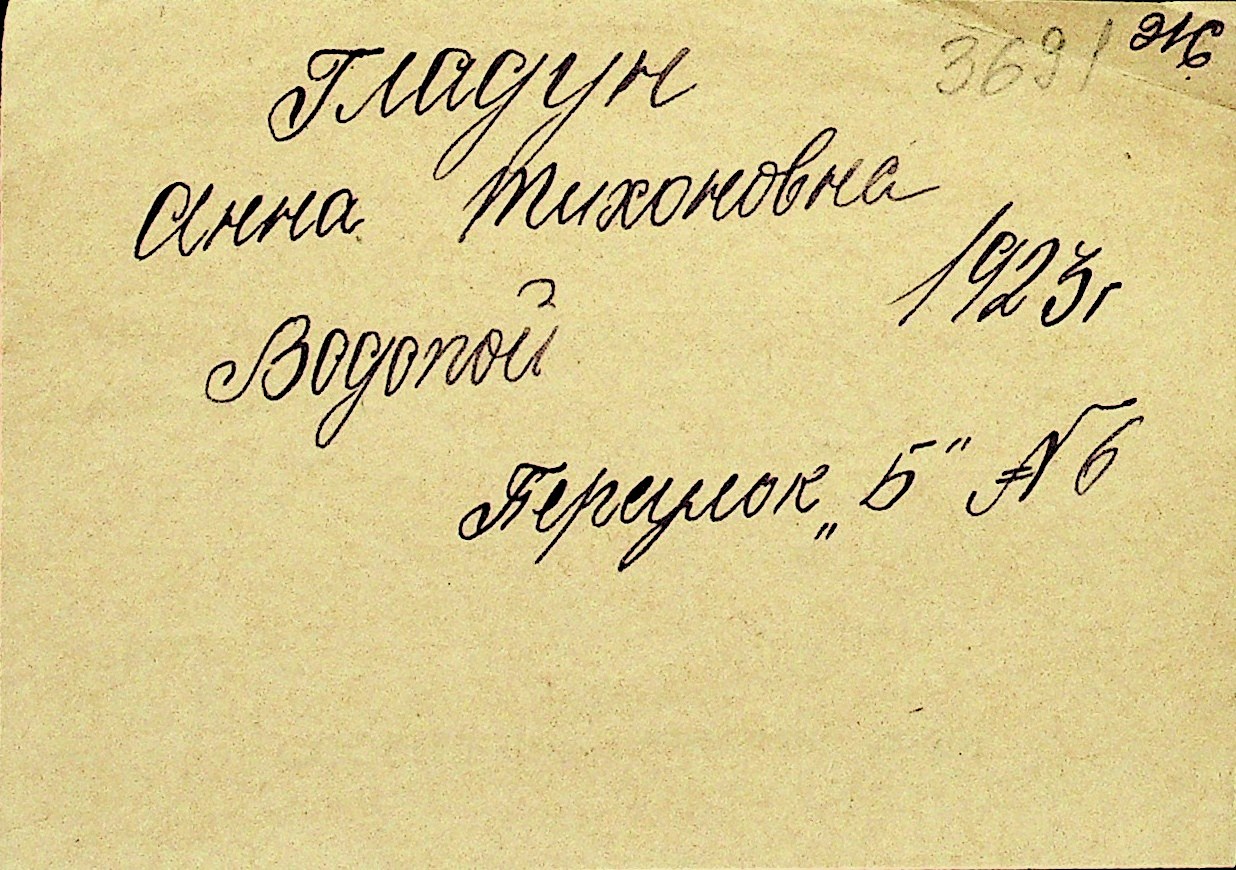 3691 Ж
Гладун
Анна Тихоновна
1923г
Водопой
Переулок „Б“ № 6